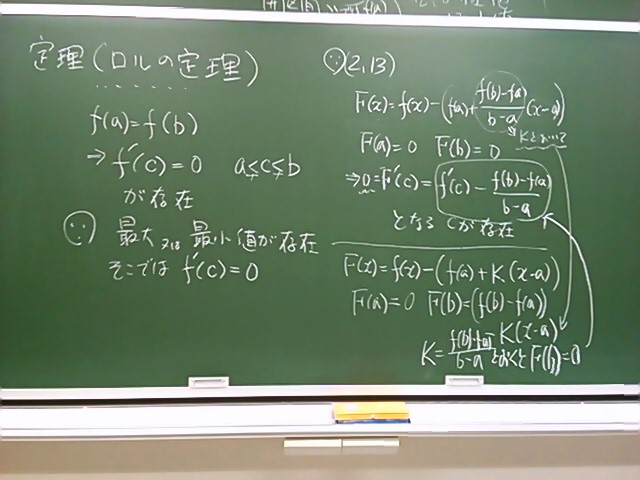 定理(ロルの定理)
f(a)=f(b)
⇒ f'(c)=0 a≤c≤b
が存在
∵ 最大又は最小値が存在
そこでは f'(c)=0
∵(2,13)
F(x)=f(x)-(f(a)+\frac{f(b)-f(a)}{b-a}(x-a))
Kとおいて
F(a)=0 F(b)=0
⇒0=F'(c)=f'(c)-\frac{f(b)-f(a)}{b-a}
となるCが存在
F(x)=f(x)-(f(a)+K(x-a))
F(a)=0 F(b)=(f(b)-f(a))
K(x-a)
K=\frac{f(b)-f(a)}{b-a}とおくとF(b)=0